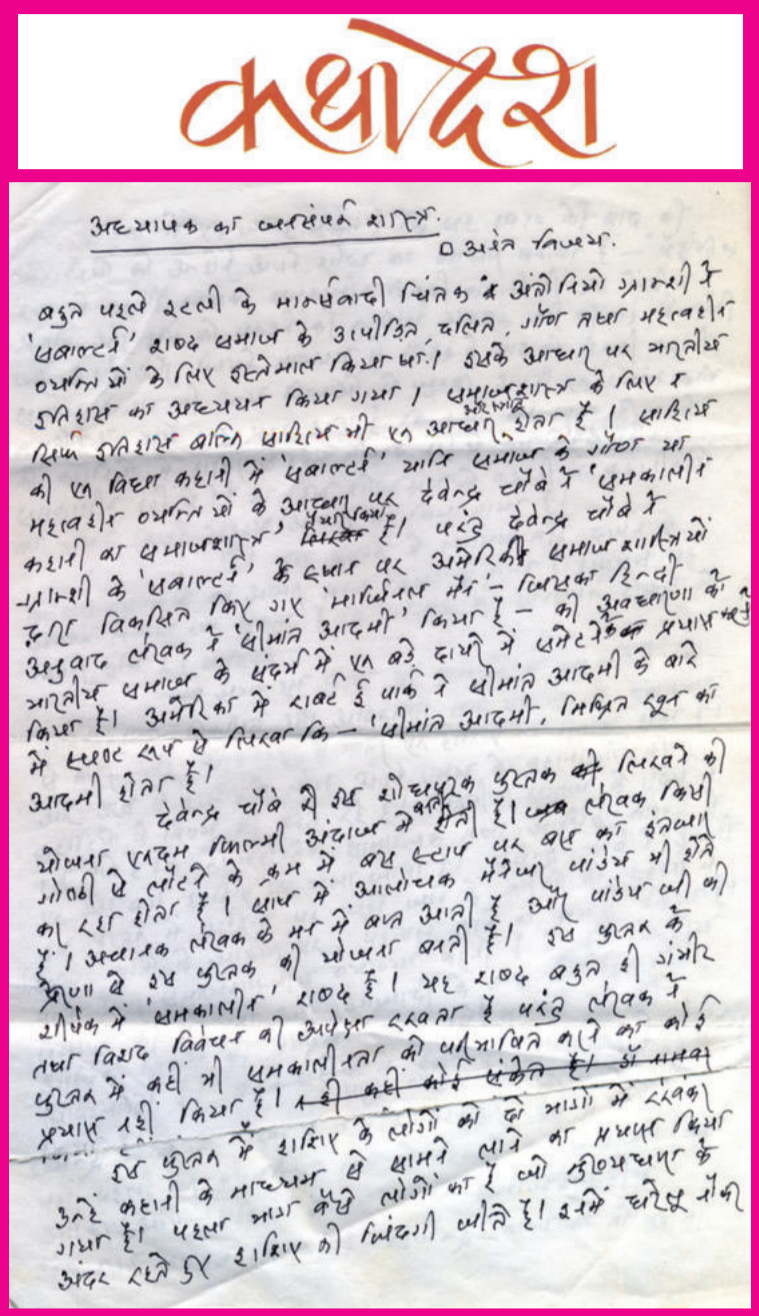 कथादेश
अध्यापक का जनसंपर्क शास्त्र.
□ अनंत विजय.
बहुत पहले इटली के मार्क्सवादी चिंतक अंतोनियो ग्राम्शी ने
'सबाल्टर्न' शब्द समाज के उत्पीड़ित, दलित, गौण तथा महत्वहीन
व्यक्तियों के लिए इस्तेमाल किया था। इसके आधार पर भारतीय
इतिहास का अध्ययन किया गया। समाजशास्त्र के लिए न
सिर्फ इतिहास बल्कि साहित्य भी एक आधार होता है। साहित्य
की एक विधा कहानी में 'सबाल्टर्न' यानि समाज के गौण या
महत्वहीन व्यक्तियों के आधार पर देवेन्द्र चौबे ने 'समकालीन
कहानी का समाजशास्त्र' तैयार किया है। परंतु देवेन्द्र चौबे ने
ग्राम्शी के 'सबाल्टर्न' के स्थान पर अमेरिकी समाजशास्त्रियों
द्वारा विकसित किए गए 'मार्जिनल मैन' – जिसका हिन्दी
अनुवाद लेखक ने 'सीमांत आदमी' किया है – की अवधारणा को
भारतीय समाज के संदर्भ में एक बड़े दायरे में समेटने का प्रयास
किया है। अमेरिका में राबर्ट ई पार्क ने सीमांत आदमी के बारे
में स्पष्ट रूप से लिखा कि – 'सीमांत आदमी, मिश्रित खून का
आदमी होता है।
देवेन्द्र चौबे की इस शोधपरक पुस्तक को लिखने की
योजना एकदम फिल्मी अंदाज में बनी होती है। लेखक किसी
गोष्ठी से लौटने के क्रम में बस स्टाप पर बस का इंतजार
कर रहा होता है। साथ में आलोचक मैनेजर पांडेय भी होते
हैं। अचानक लेखक के मन में बात आती है और पांडेय जी की
प्रेरणा से इस पुस्तक की योजना बनती है। इस पुस्तक के
शीर्षक में 'समकालीन' शब्द है। यह शब्द बहुत ही गंभीर
तथा विशद विवेचन की अपेक्षा रखता है परंतु लेखक ने
पुस्तक में कहीं भी समकालीनता को परिभाषित करने का कोई
प्रयास नहीं किया है। न ही कहीं कोई संकेत है।
इस पुस्तक में हाशिए के लोगों को दो भागों में रखकर
उन्हें कहानी के माध्यम से सामने लाने का प्रयास किया
गया है। पहला भाग वैसे लोगों का है जो मुख्यधारा के
अंदर रहते हुए हाशिए की जिंदगी जीते हैं। इनमें घरेलू नौकर